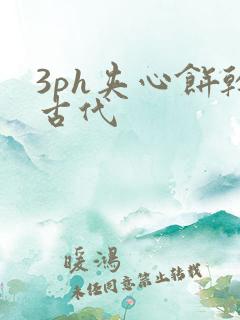 3ph夹心饼干
古代
暖鸿
未经同意禁止转载